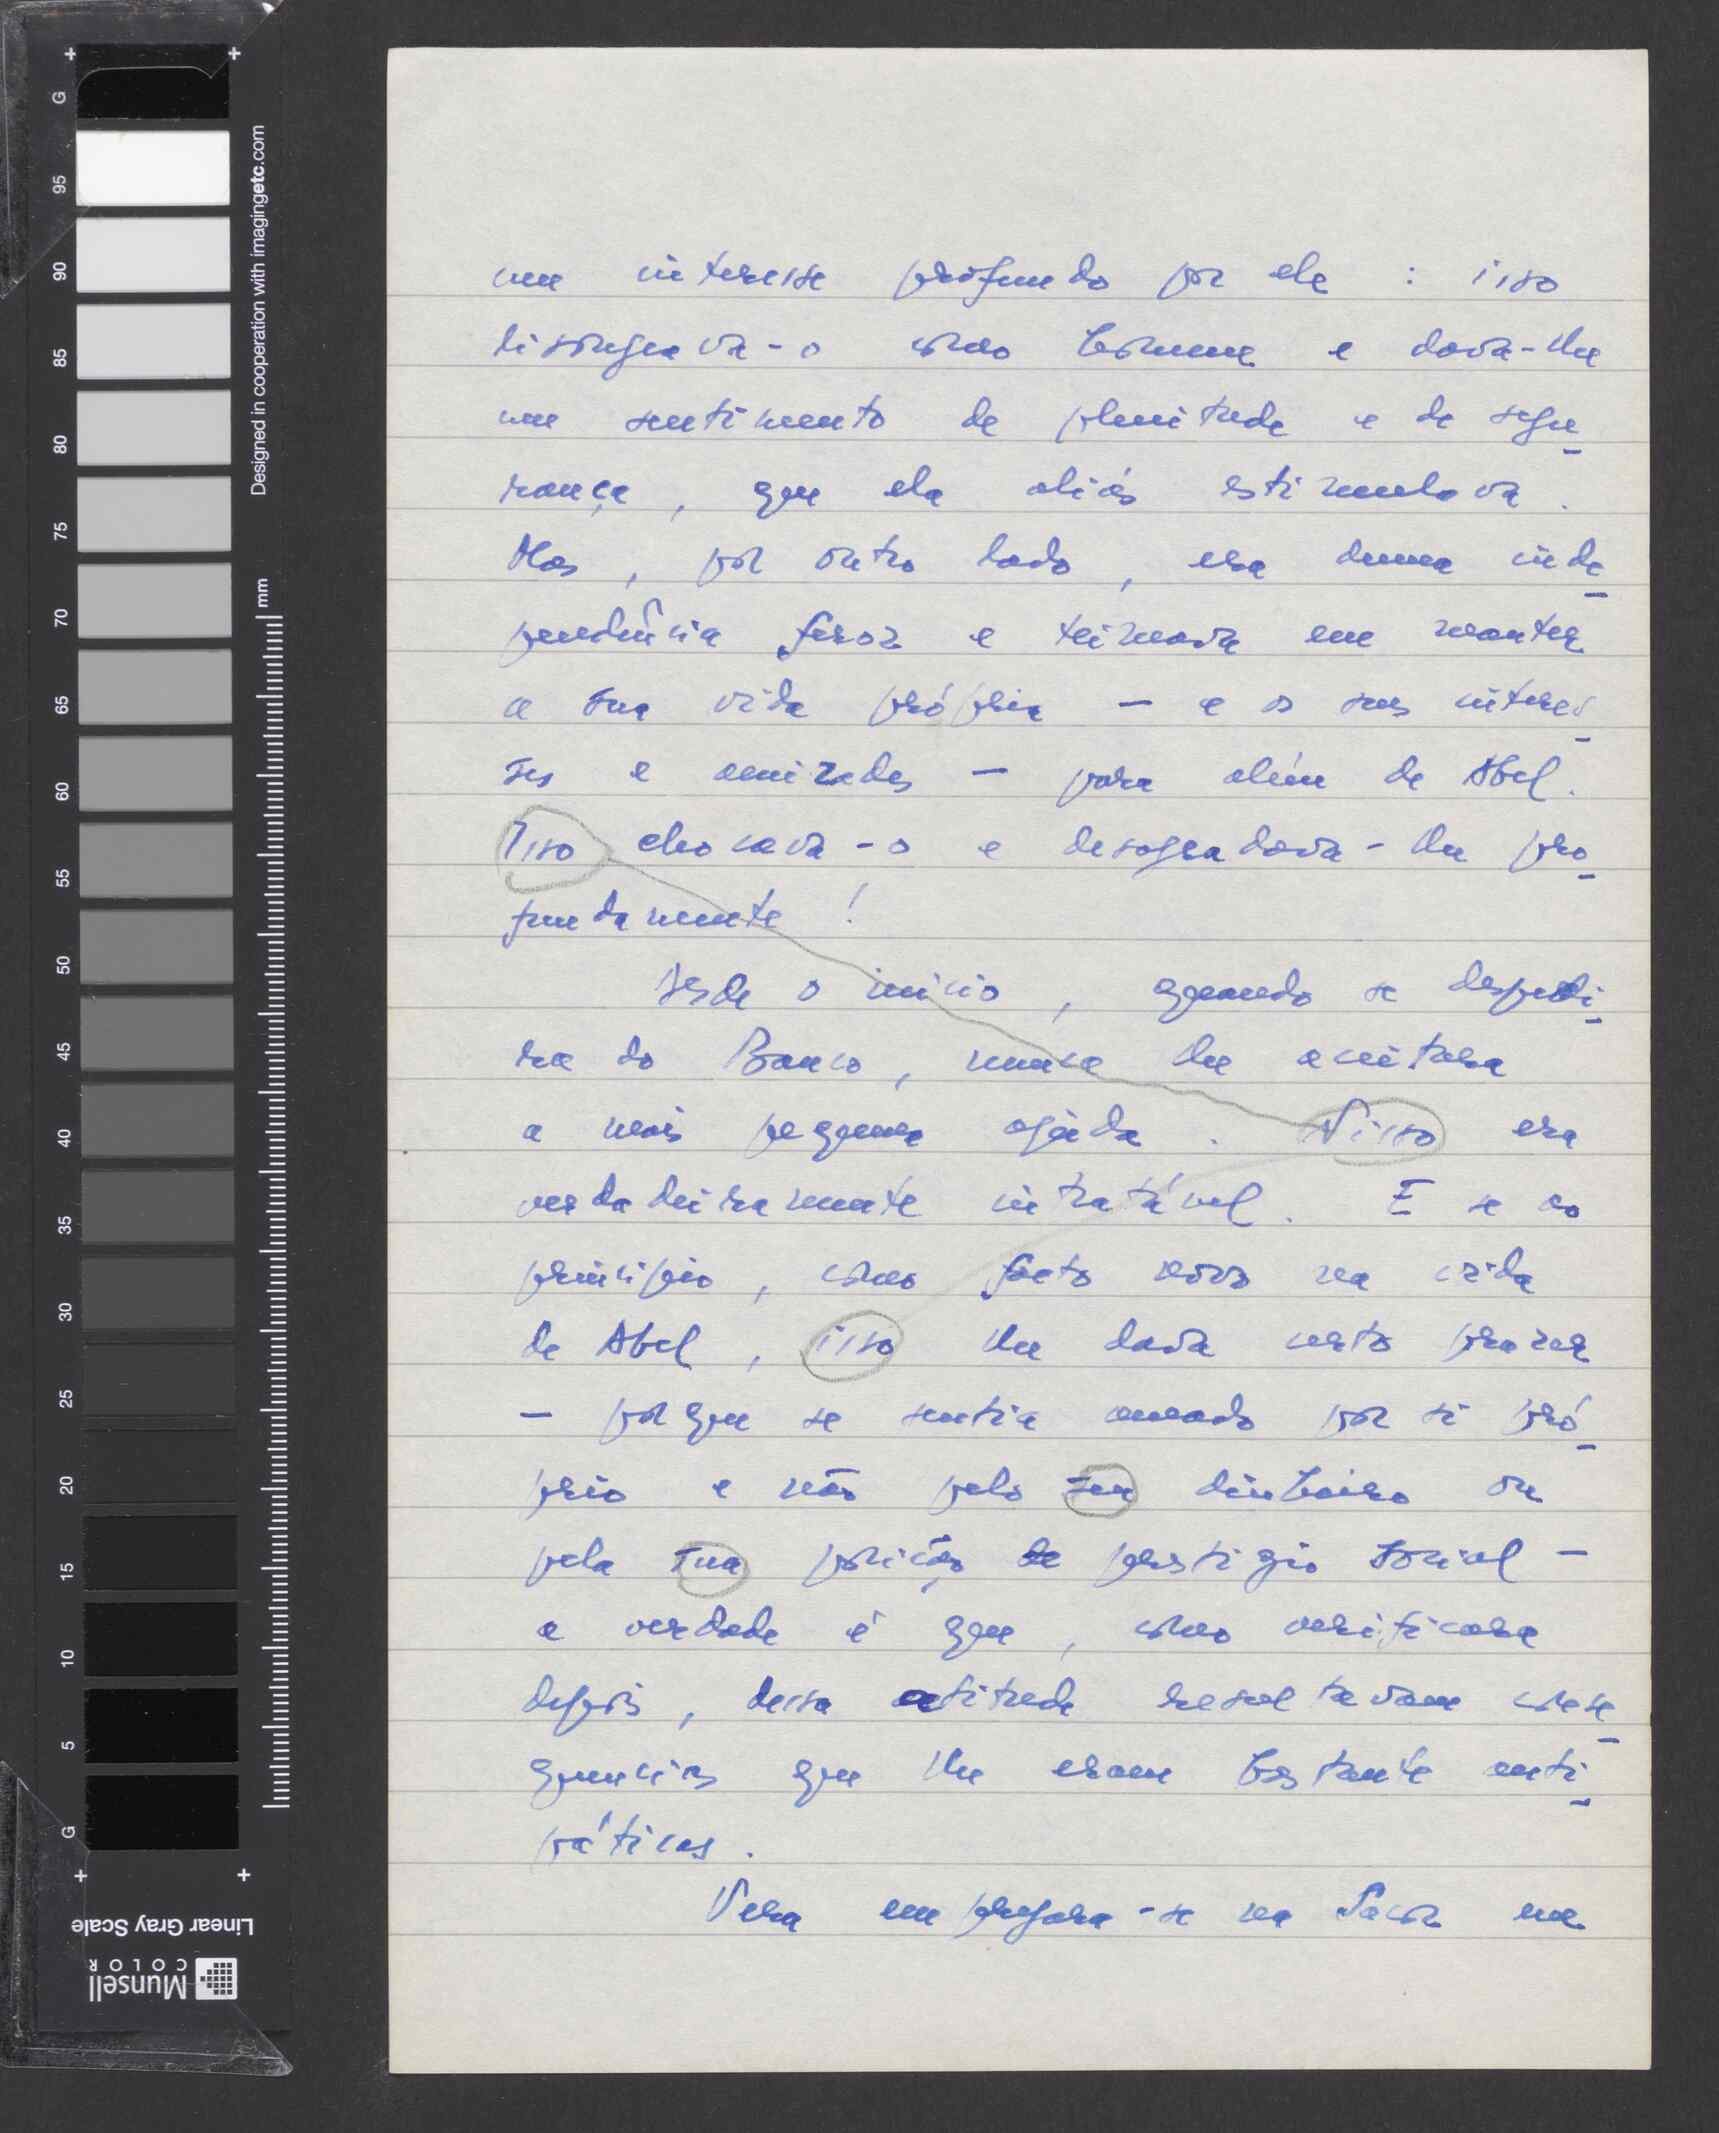 um interesse profundo por ele : isso
lisongeava-o como homem e dava-lhe
um sentimento de plenitude e de segu
rança, que ela aliás estimulava.
Mas, por outro lado, era duma inde
pendência feroz e teimava em manter
a sua vida própria — e os seus interes
ses e amizades — para além de Abel.
Isso chocava-o e desagradava-lhe pro
fundamente !
Desde o início, quando se despedi
ra do Banco, nunca lhe aceitara
a mais pequena ajuda. Nisso era
verdadeiramente intratável. E se ao
princípio, como facto novo na vida
de Abel, isso lhe dava certo prazer
— porque se sentia amado por si pró
prio e não pelo seu dinheiro ou
pela sua posição de prestígio social —
a verdade é que, como verificara
depois, dessa atitude resultavam conse
quencias que lhe eram bastante anti
páticas.
Vera empregara-se na Sacor um
G
95
90
85
80
75
70
65
60
55
50
45
40
35
30
25
20
15
10
5
G
mm
Designed in cooperation with imagingetc.com
Linear Gray Scale
Munsell
COLOR